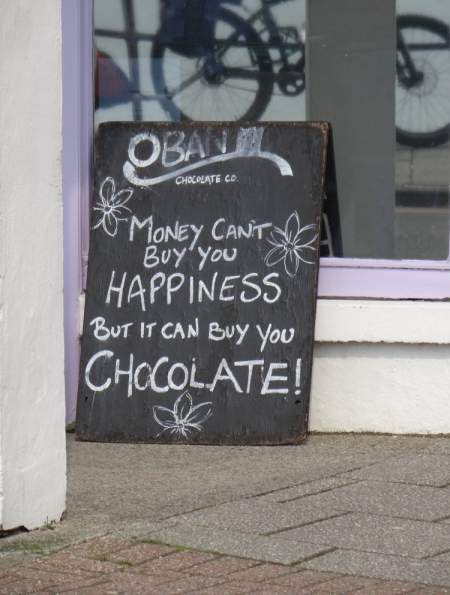 OBAN
CHOCOLATE CO.
MONEY CAN'T
BUY YOU
HAPPINESS
BUT IT CAN BUY YOU
CHOCOLATE!